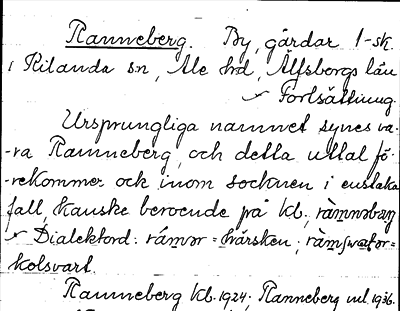 Ranneberg. By, gårdar 1-sk.
i Kilanda sn, Ale hd, Älfsborgs län
↗ Fortsättning.
Ursprungliga namnet synes va-
-ra Ramneberg, och detta uttal fö-
-rekommer ock inom socknen i enstaka
fall, kanske beroende på kb.,
↗ Dialektord: = hårsken,
kolsvart.
Ramneberg kb. 1924; Ranneberg